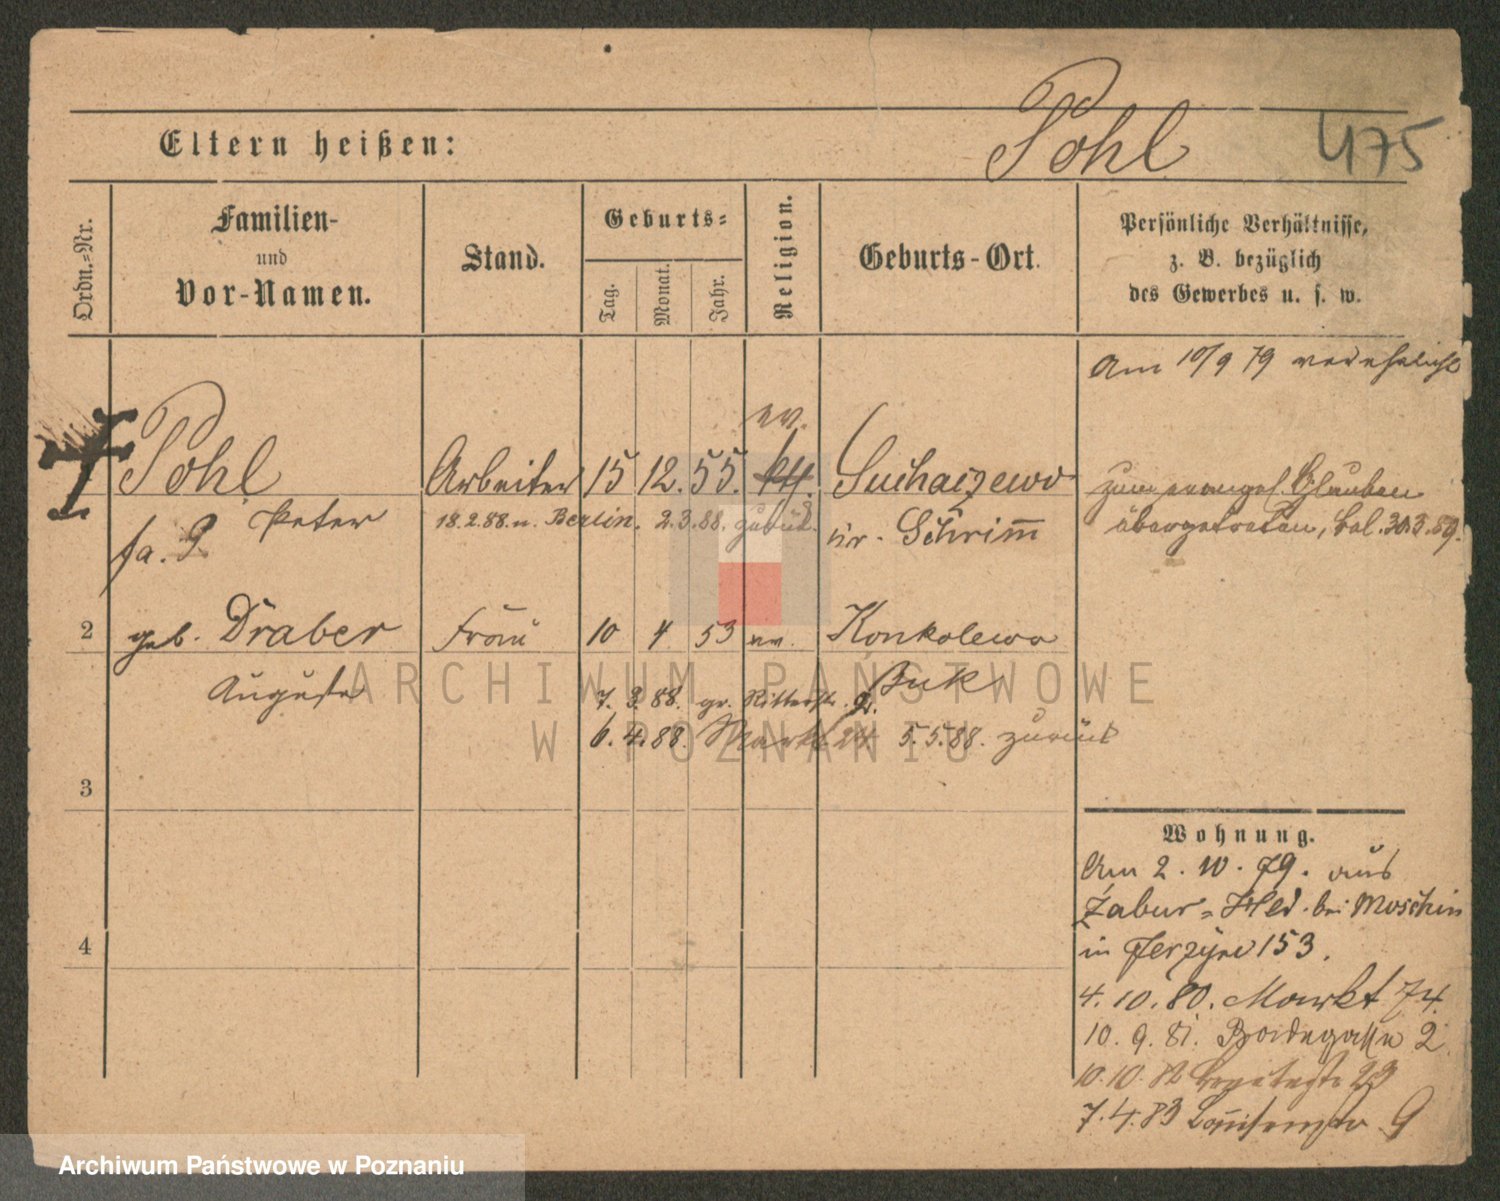 Pohl 475
Eltern heißen:
Ordn.=Nr.
Familien-
und
Vor-Namen.
Stand.
Geburts=
Tag.
Monat.
Jahr.
Religion.
Geburts-Ort.
Persönliche Verhältnisse,
z. B. bezüglich
des Gewerbes u. s. w.
Am 10/9 79 verehelicht
ev.
Pohl Arbeiter 15 12. 55. kth. Suchaczewo
Peter
18.2.88. n. Berlin. 2.3.88. zurück.
Kr. Schrimm
zum evangel. Glauben
übergetreten,
2 geb. Draber Frau 10 4 53 ev. Konkolewo
Auguste Buk
7. 3. 88. gr. Ritterstr. 9.
6. 4. 88. Markt 24. 5.5.88. zurück
3
4
Wohnung.
Am 2. 10. 79. aus
Zabur=Hld. bei Moschin
in Jerzyce 153.
4. 10. 80. Markt 74.
10. 9. 81. 2.
10. 10. 82 23
7. 4. 83 Louisenstr. 9
ARCHIWUM PAŃSTWOWE
W POZNANIU
Archiwum Państwowe w Poznaniu